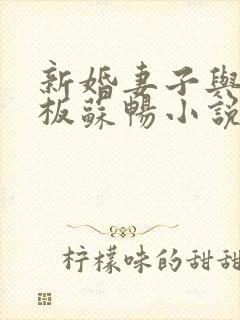 新婚妻子與
板蘇暢小說
柠檬味的甜甜